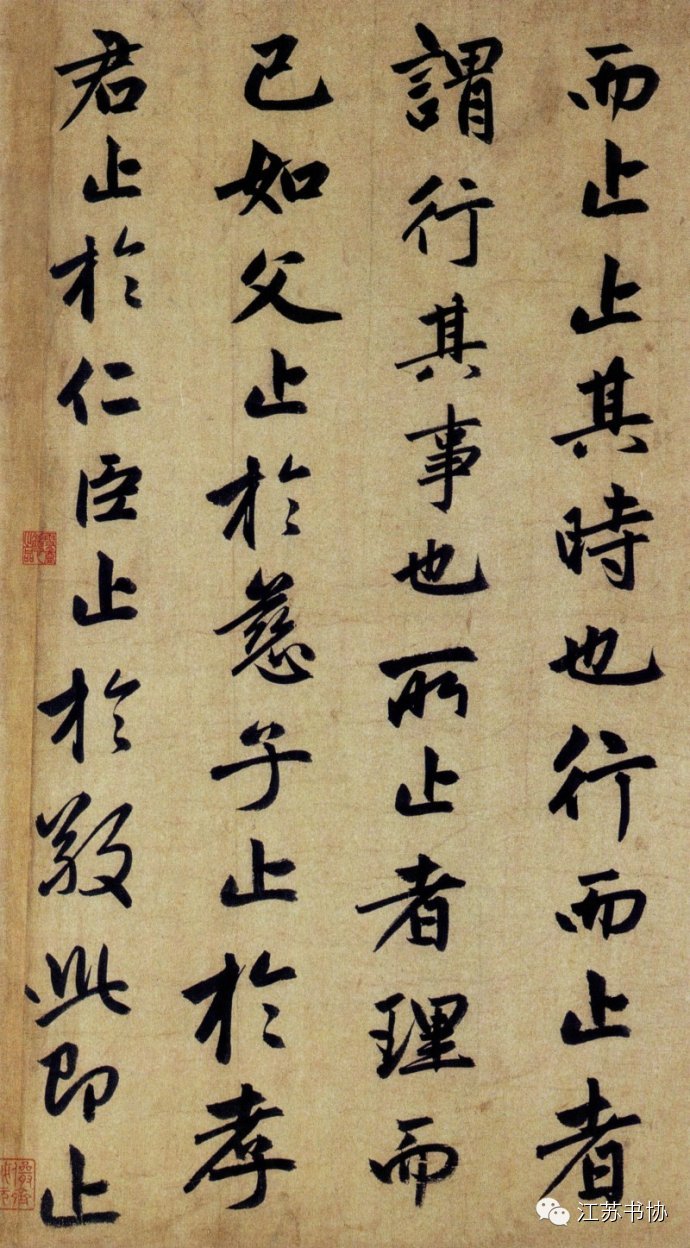 而止止其時也行而止者
謂行其事也所止者理而
已如父止於慈子止於孝
君止於仁臣止於敬此即止
江苏书协